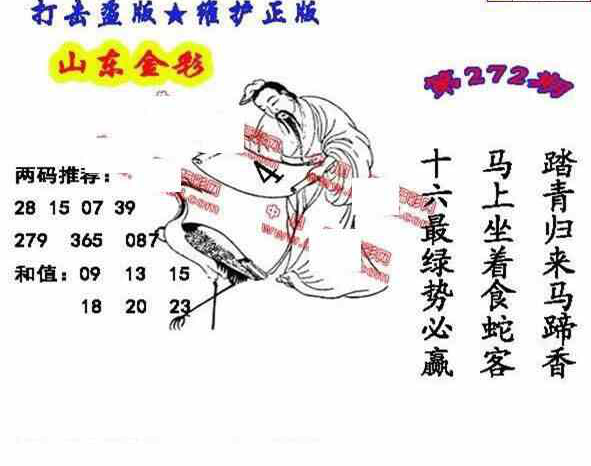 打击盗版★维护正版
山东金彩
第272期
两码推荐：
28 15 07 39
279 365 087
和值：09 13 15
18 20 23
4
踏青归来马蹄香
马上坐着食蛇客
十六最绿势必赢